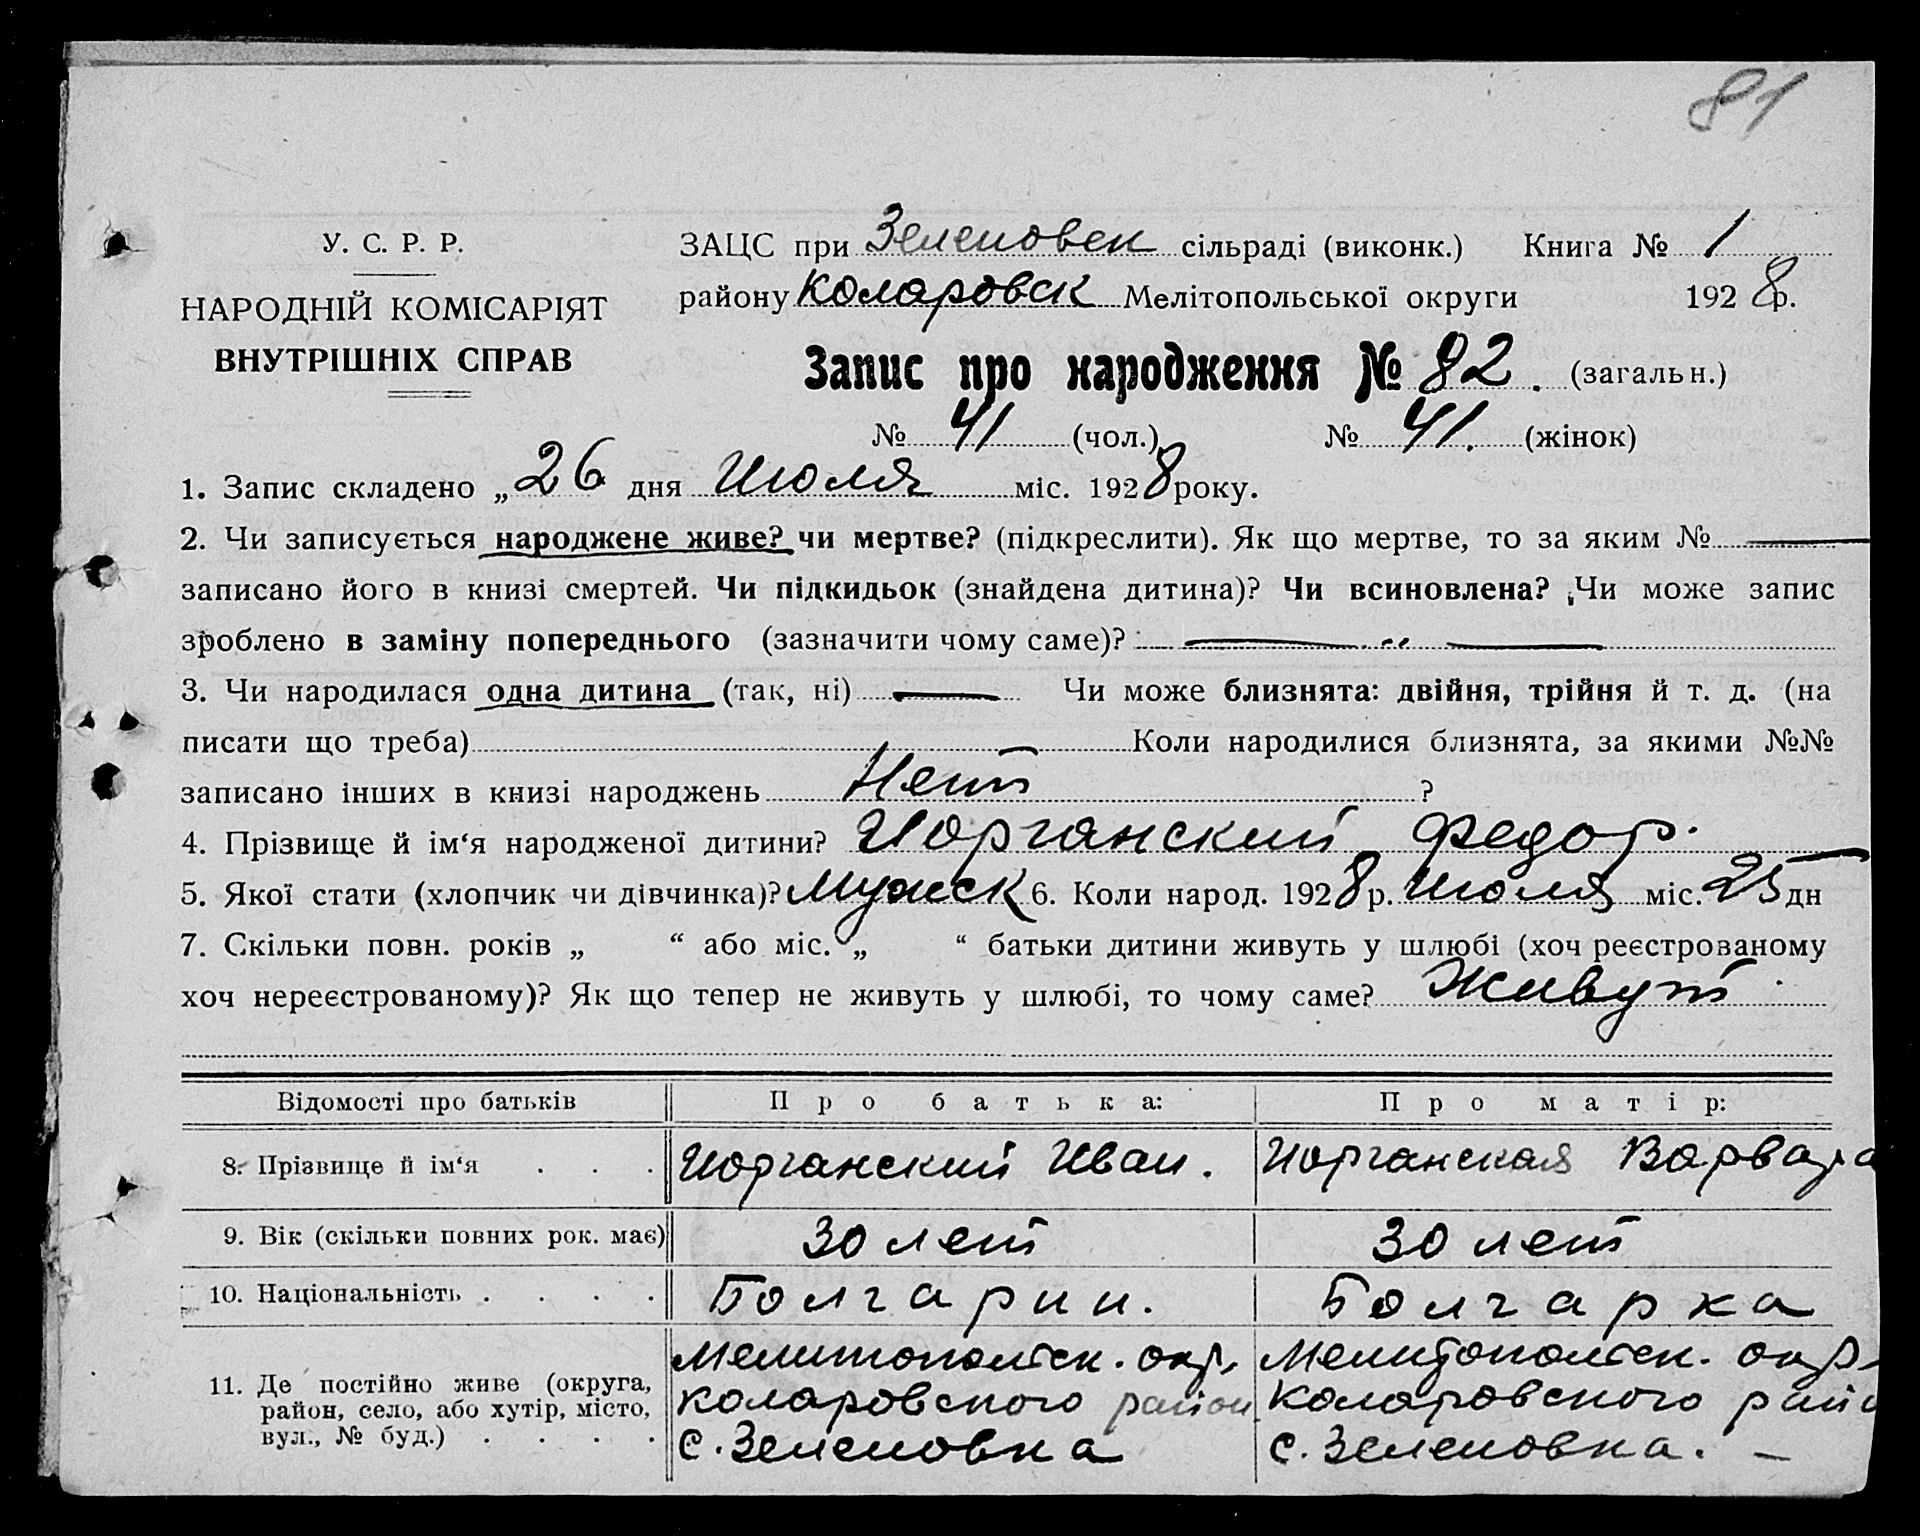 81
У. С. Р. Р.
НАРОДНІЙ КОМІСАРІЯТ
ВНУТРІШНІХ СПРАВ
ЗАЦС при Зеленовск сільраді (виконк.) Книга № 1
району Коларовск Мелітопольської округи 1928 р.
Запис про народження № 82. (загальн.)
№ 41 (чол.) № 41. (жінок)
1. Запис складено „ 26 дня Июля міс. 1928 року.
2. Чи записується народжене живе? чи мертве? (підкреслити). Як що мертве, то за яким № —
записано його в книзі смертей. Чи підкидьок (знайдена дитина)? Чи всиновлена? Чи може запис
зроблено в заміну попереднього (зазначити чому саме)? — „ —
3. Чи народилася одна дитина (так, ні) — Чи може близнята: двійня, трійня й т. д. (на
писати що треба) Коли народилися близнята, за якими №№
записано інших в книзі народжень Нет ?
4. Прізвище й ім‘я народженої дитини? Иорганский Федор.
5. Якої стати (хлопчик чи дівчинка)? Мужск 6. Коли народ. 1928 р. Июля міс. 25 дн
7. Скільки повн. років „ “ або міс. „ “ батьки дитини живуть у шлюбі (хоч реєстрованому
хоч нереєстрованому)? Як що тепер не живуть у шлюбі, то чому саме? Живут
Відомості про батьків Про батька: Про матір:
8. Прізвище й ім‘я . . . Иорганский Иван. Иорганская Варвара
9. Вік (скільки повних рок. має) 30 лет 30 лет
10. Національність . . . . Болгарин. Болгарка
11. Де постійно живе (округа,
район, село, або хутір, місто,
вул., № буд.) . . . .
Мелитопольск. окр.
Коларовского район
с. Зеленовка
Мелитопольск. окр.
Коларовского райо
с. Зеленовка. —